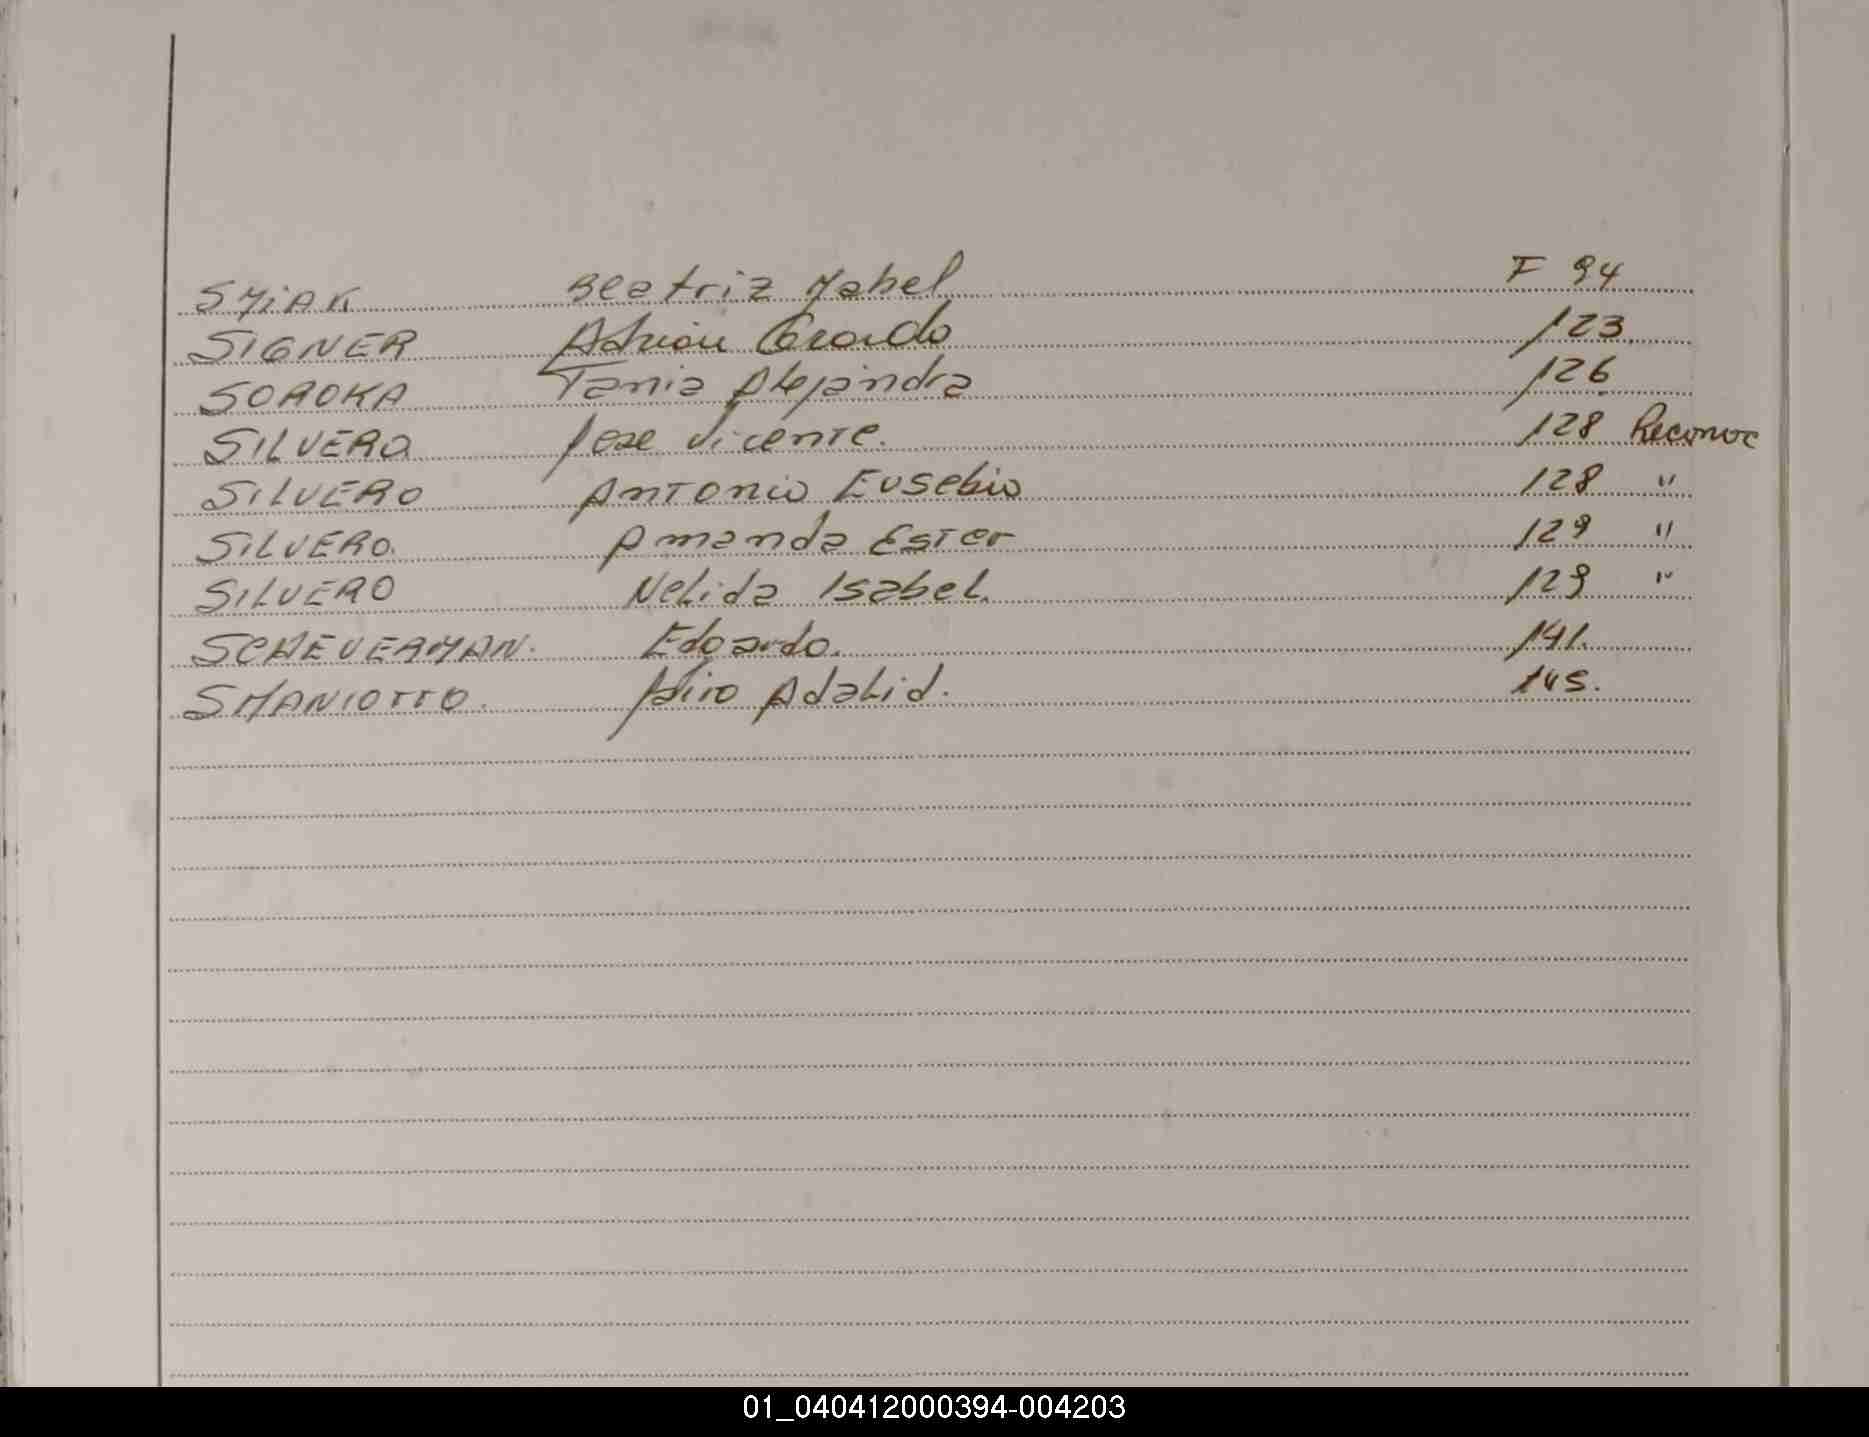 SMiAK Beatriz Mabel F 94
SIGNER Adrian Gerardo 123
SOROKA Tania Alejandra 126
SILVERO Jose Vicente. 128 Reconoc
SILVERO Antonio Eusebio 128 "
SILVERO. Amanda Ester 129 "
SILVERO Nelida Isabel. 129 "
SCHEVERMAN. Edoardo. 141.
SMANIOTTO. Jairo Adalid. 145.
01_040412000394-004203